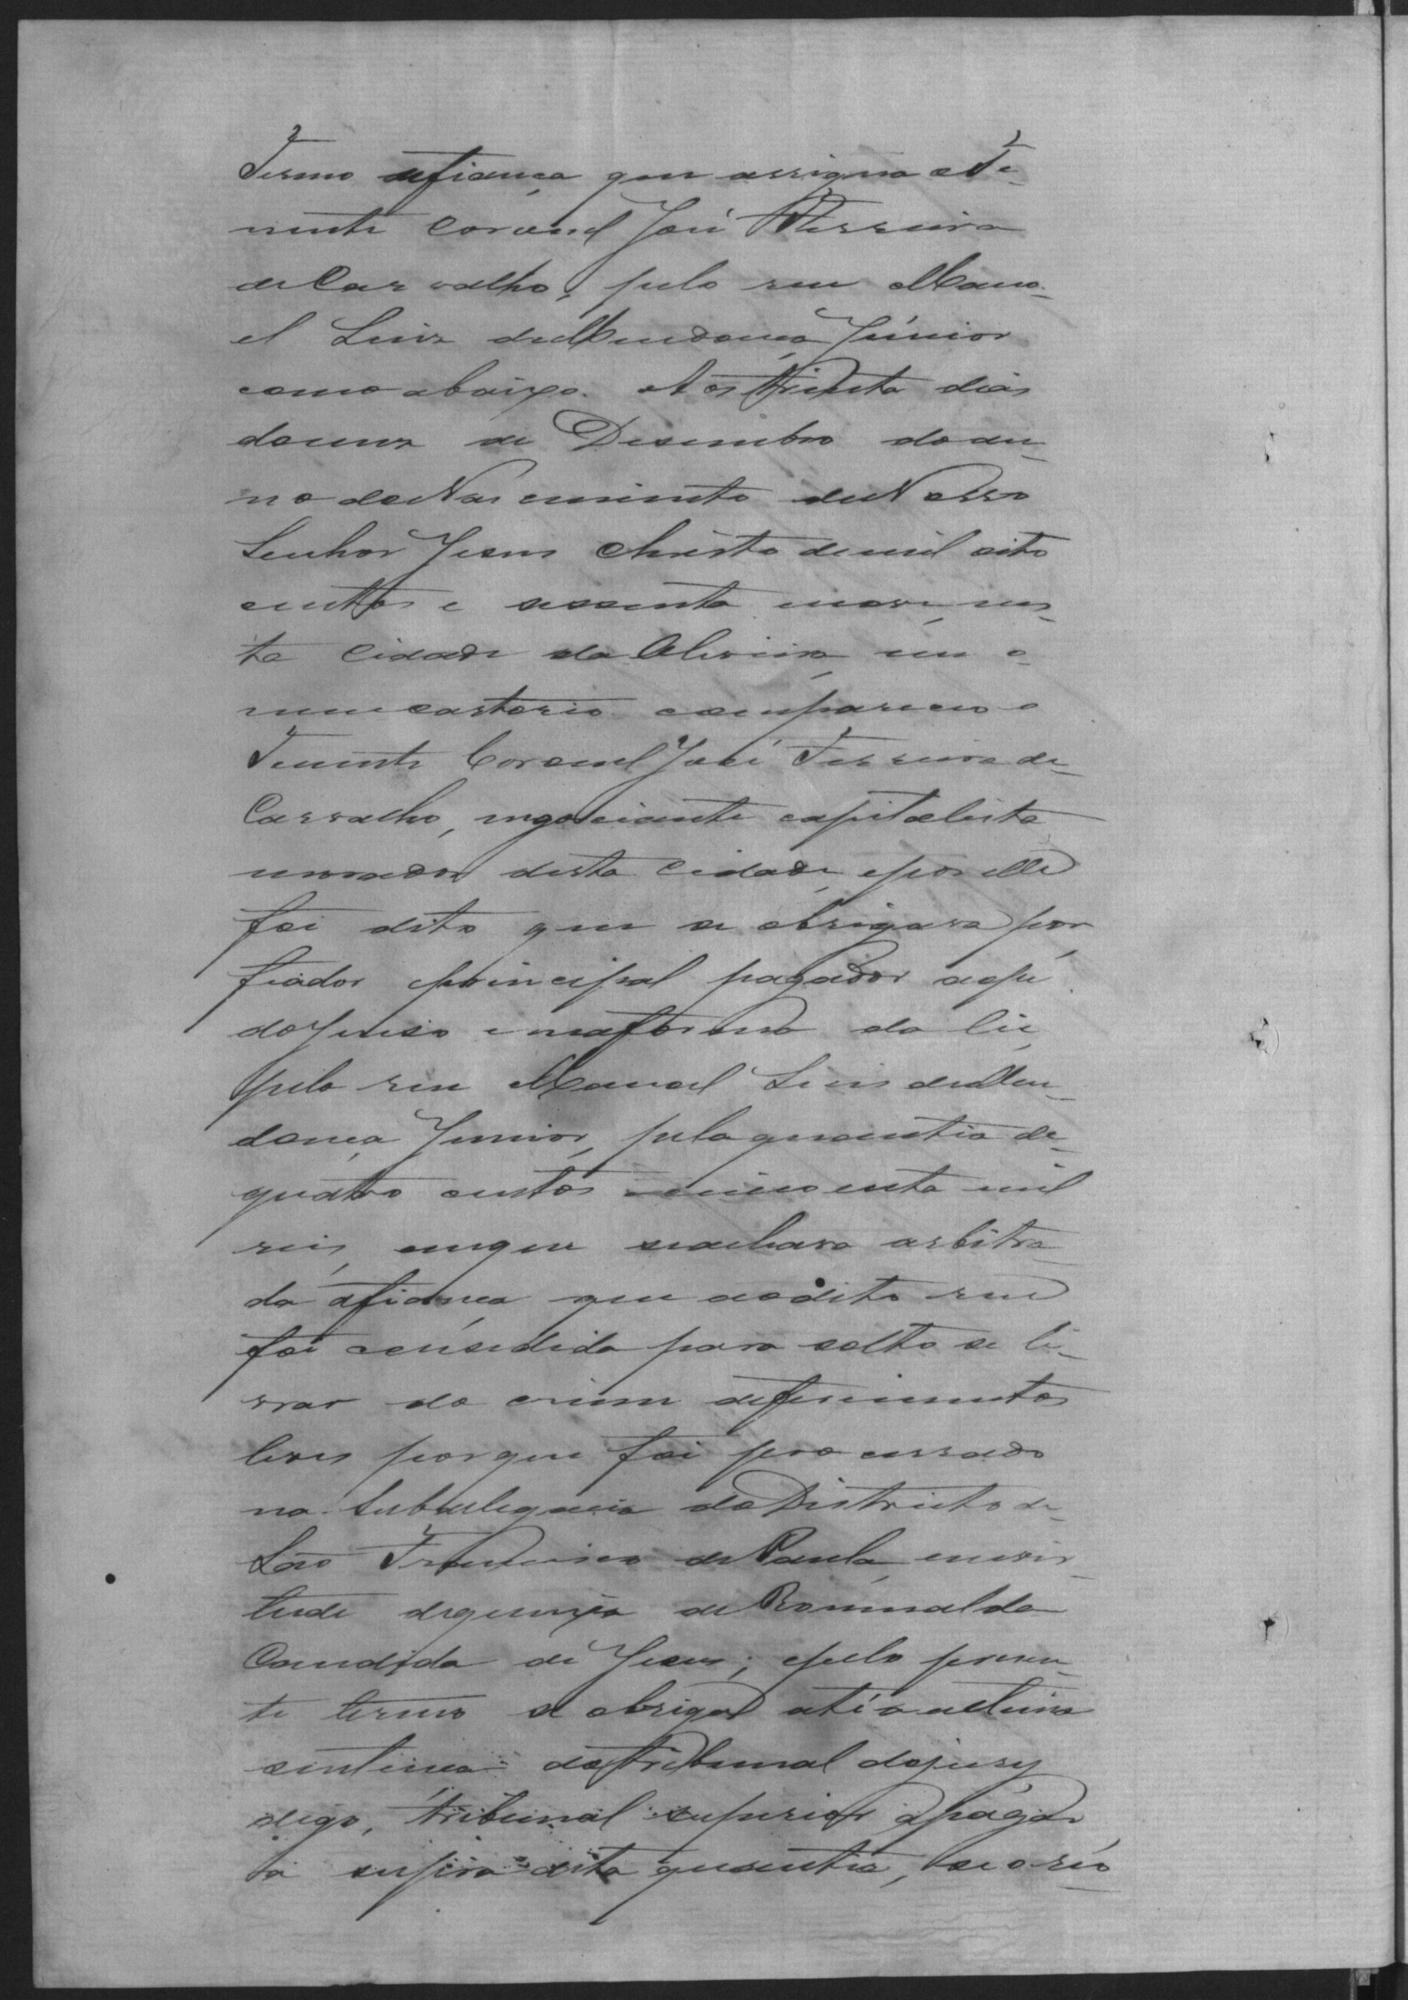 Termo defiança que assigna oTe-
nente Coronel José Ferreira
deCarvalho, pelo reu Mano-
el Luiz deMendonça Júnior
como abaixo. Aos trinta dias
domez de Desembro doan-
no doNascimento deNosso
Senhor Jesus Christo demil oito
centos e sessenta enove, nes-
ta Cidade da Oliveira, em o
meu cartorio compareceo o
Tenente Coronel José Ferreira de-
Carvalho, negociante capitalista
morador desta Cidade, epor elle
foi dito que se obrigava por
fiador eprincipal pagador aopé
doJuiso e naforma da lei,
pelo reu Manoel Luis deMen-
donça Junior, pela quantia de-
quatro centos ecincoenta mil
reis, emque seachava arbitra-
da afiança que aodito reu
foi consedida para solto se li-
vrar do crime deferimentos
leves porque foi processado
na Subdelegacia doDistricto de-
São Francisco dePaula, emvir-
tude dequeixa deRomualda
Candida de Jesus; epelo presen-
te termo se obriga atéaultima
sentença dotribunal dojury
digo, tribunal superior apagar
a supra dita quantia, seoréo